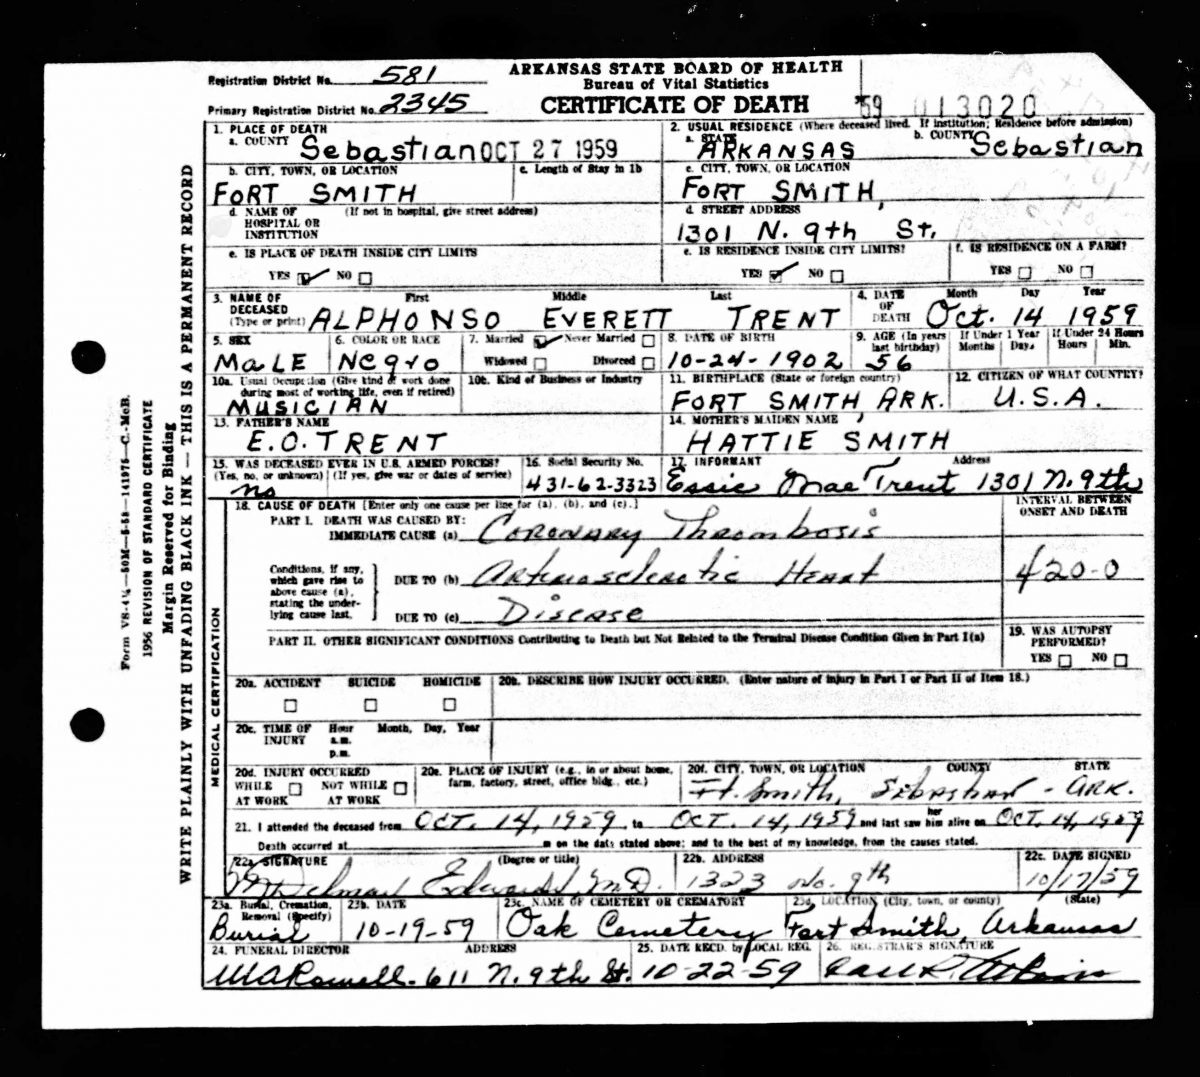 Registration District No. 581
ARKANSAS STATE BOARD OF HEALTH
Bureau of Vital Statistics
Primary Registration District No. 2345
CERTIFICATE OF DEATH
'59 013020
1. PLACE OF DEATH
a. COUNTY Sebastian OCT 27 1959
2. USUAL RESIDENCE (Where deceased lived. If institution; Residence before admission)
a. STATE ARKANSAS b. COUNTY Sebastian
b. CITY, TOWN, OR LOCATION FORT SMITH
c. Length of Stay in 1b
c. CITY, TOWN, OR LOCATION FORT SMITH,
d. NAME OF HOSPITAL OR INSTITUTION (If not in hospital, give street address)
d. STREET ADDRESS 1301 N. 9th St.
e. IS PLACE OF DEATH INSIDE CITY LIMITS
YES NO
e. IS RESIDENCE INSIDE CITY LIMITS?
YES NO
f. IS RESIDENCE ON A FARM?
YES NO
3. NAME OF DECEASED (Type or print)
First Middle Last
ALPHONSO EVERETT TRENT
4. DATE OF DEATH
Month Day Year
Oct. 14 1959
5. SEX MALE
6. COLOR OR RACE Negro
7. Married Never Married
Widowed Divorced
8. DATE OF BIRTH 10-24-1902
9. AGE (In years last birthday) 56
If Under 1 Year Months Days
If Under 24 Hours Hours Min.
10a. Usual Occupation (Give kind of work done during most of working life, even if retired)
MUSICIAN
10b. Kind of Business or Industry
11. BIRTHPLACE (State or foreign country)
FORT SMITH ARK.
12. CITIZEN OF WHAT COUNTRY?
U.S.A.
13. FATHER'S NAME
E.O. TRENT
14. MOTHER'S MAIDEN NAME
HATTIE SMITH
15. WAS DECEASED EVER IN U.S. ARMED FORCES?
(Yes, no, or unknown) (If yes, give war or dates of service)
no
16. Social Security No.
431-62-3323
17. INFORMANT Address
Essie Mae Trent 1301 N. 9th
18. CAUSE OF DEATH [Enter only one cause per line for (a), (b), and (c).]
INTERVAL BETWEEN ONSET AND DEATH
PART I. DEATH WAS CAUSED BY:
IMMEDIATE CAUSE (a) Coronary Thrombosis
Conditions, if any, which gave rise to above cause (a), stating the underlying cause last.
DUE TO (b) Arteriosclerotic Heart
420-0
DUE TO (c) Disease
PART II. OTHER SIGNIFICANT CONDITIONS Contributing to Death but Not Related to the Terminal Disease Condition Given in Part I(a)
19. WAS AUTOPSY PERFORMED?
YES NO
20a. ACCIDENT SUICIDE HOMICIDE
20b. DESCRIBE HOW INJURY OCCURRED. (Enter nature of injury in Part I or Part II of Item 18.)
20c. TIME OF INJURY Hour a.m. p.m. Month, Day, Year
20d. INJURY OCCURRED
WHILE AT WORK NOT WHILE AT WORK
20e. PLACE OF INJURY (e.g., in or about home, farm, factory, street, office bldg., etc.)
20f. CITY, TOWN, OR LOCATION COUNTY STATE
Ft. Smith, Sebastian - ARK.
21. I attended the deceased from OCT. 14, 1959 to OCT. 14, 1959 and last saw her him alive on OCT. 14, 1959
Death occurred at m on the date stated above; and to the best of my knowledge, from the causes stated.
22a SIGNATURE (Degree or title)
Edwards M.D.
22b. ADDRESS
1323 No. 9th
22c. DATE SIGNED
10/17/59
23a. Burial, Cremation, Removal (Specify)
Burial
23b. DATE
10-19-59
23c. NAME OF CEMETERY OR CREMATORY
Oak Cemetery
23d. LOCATION (City, town, or county) (State)
Fort Smith, Arkansas
24. FUNERAL DIRECTOR ADDRESS
611 N. 9th St.
25. DATE RECD. by LOCAL REG.
10-22-59
26. REGISTRAR'S SIGNATURE
MEDICAL CERTIFICATION
WRITE PLAINLY WITH UNFADING BLACK INK — THIS IS A PERMANENT RECORD
Margin Reserved for Binding
1956 REVISION OF STANDARD CERTIFICATE